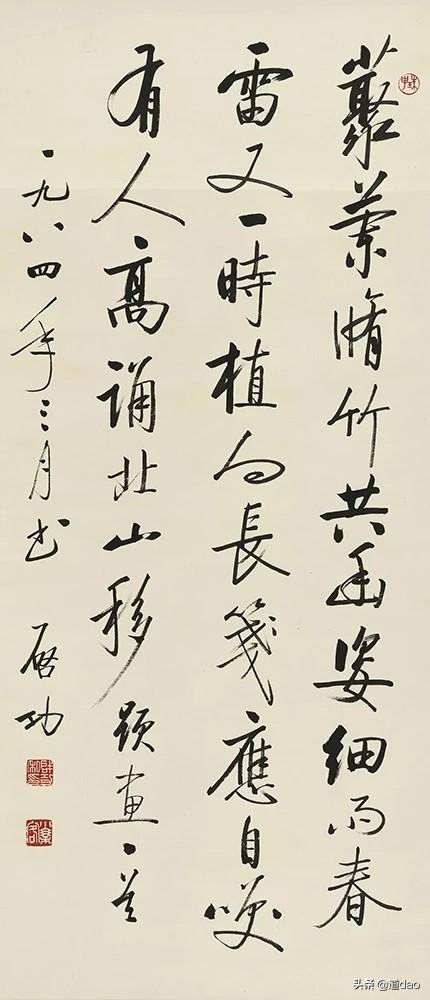 藂蘭脩竹共幽姿細雨春
雷又一時植向長箋應自咲
有人高誦北山移 題畫一首
一九八四年三月书 启功
头条 @道dao